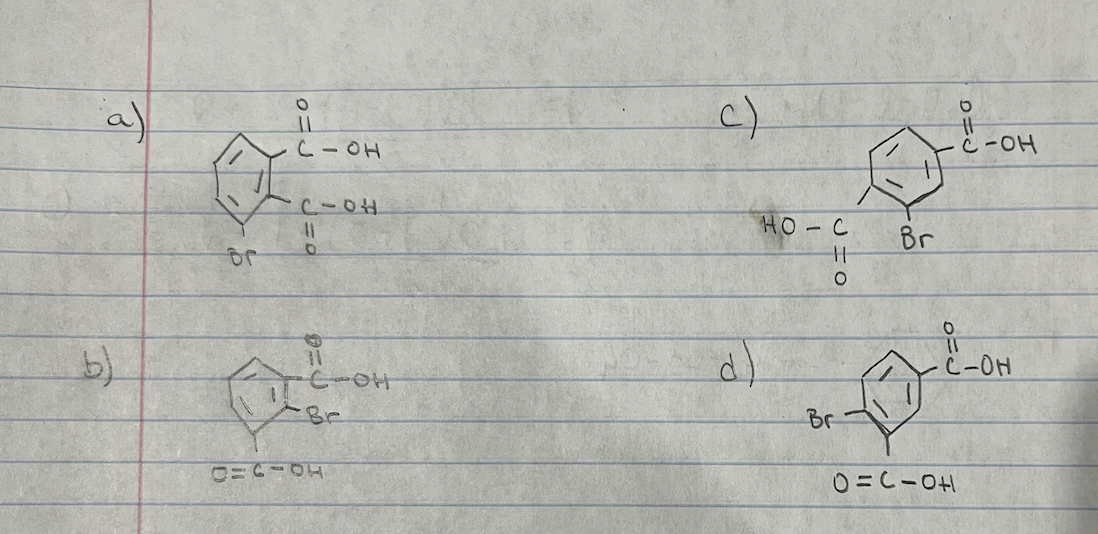 a)
O
||
C - OH
C - OH
||
O
Br
b)
O
||
C - OH
Br
O=C-OH
c)
O
||
C-OH
HO - C
||
O
Br
d)
O
||
C-OH
Br
O=C-OH